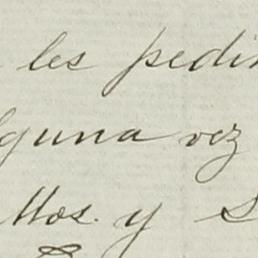 les pedi
alguna vez
llos. y S